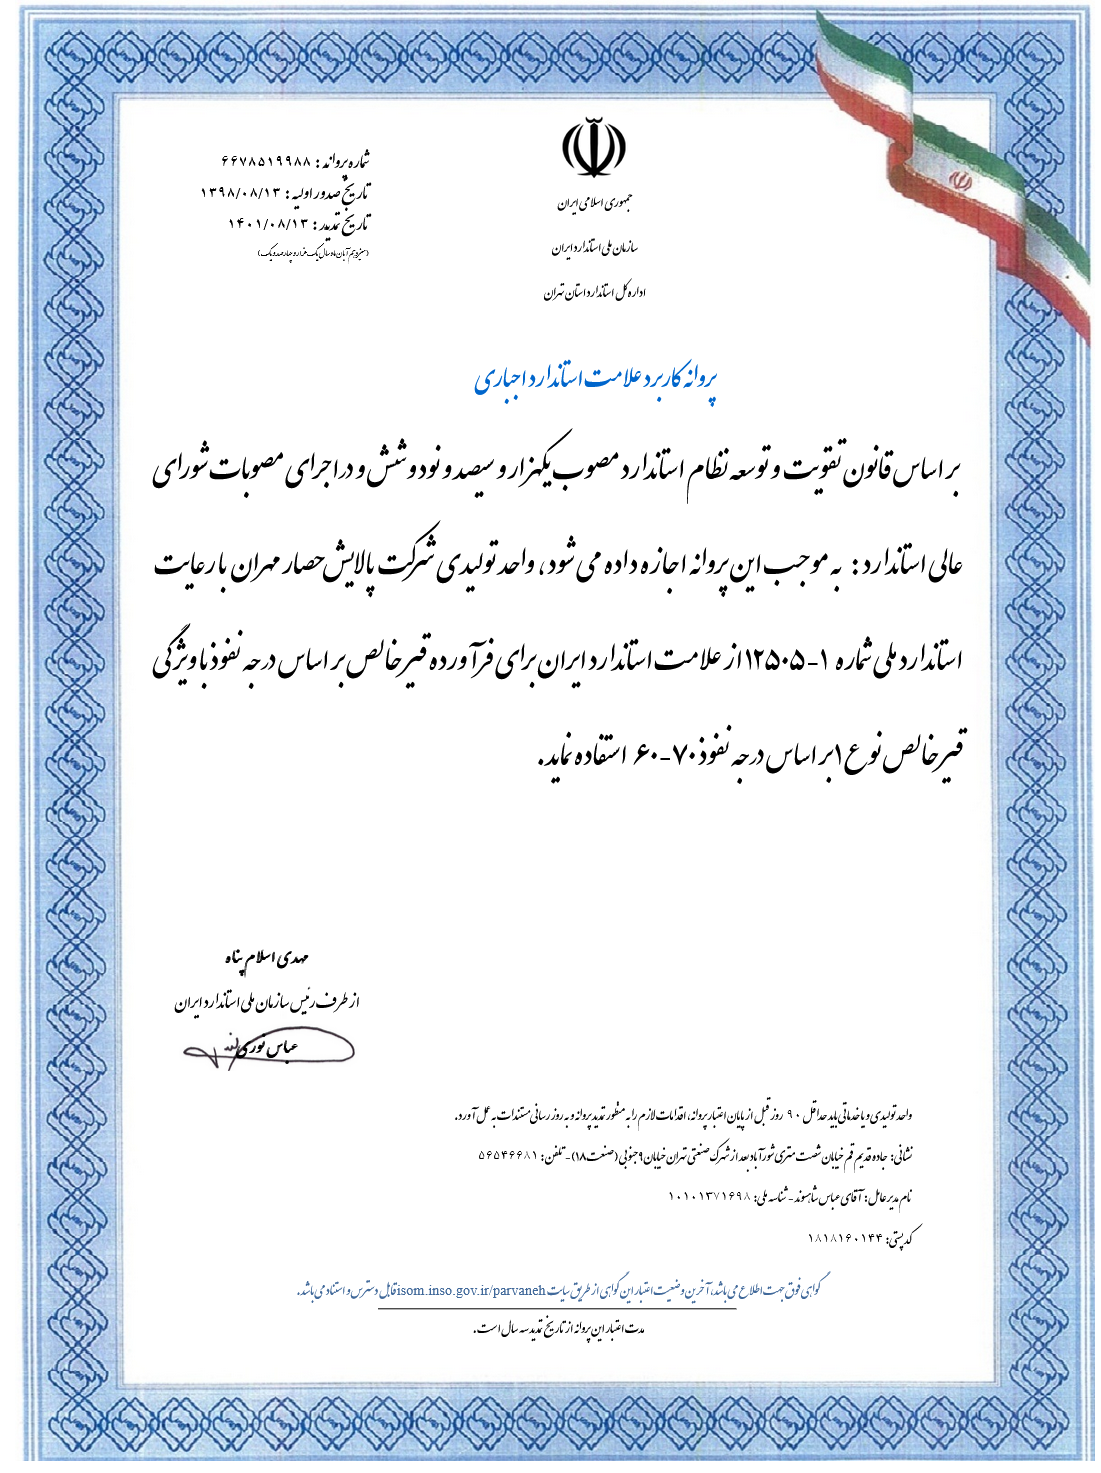 جمهوری اسلامی ایران
سازمان ملی استاندارد ایران
اداره کل استاندارد استان تهران
شماره پروانه : ۶۶۷۸۵۱۹۹۸۸
تاریخ صدور اولیه : ۱۳۹۸/۰۸/۱۳
تاریخ تمدید : ۱۴۰۱/۰۸/۱۳
(سیزدهم آبان ماه سال یک هزار و چهارصد و یک)
پروانه کاربرد علامت استاندارد اجباری
بر اساس قانون تقویت و توسعه نظام استاندارد مصوب یکهزار و سیصد و نود و شش و در اجرای مصوبات شورای
عالی استاندارد : به موجب این پروانه اجازه داده می شود ، واحد تولیدی شرکت پالایش حصار مهران با رعایت
استاندارد ملی شماره ۱-۱۲۵۰۵ از علامت استاندارد ایران برای فرآورده قیر خالص بر اساس درجه نفوذ با ویژگی
قیر خالص نوع ۱ بر اساس درجه نفوذ ۷۰-۶۰ استفاده نماید .
مهدی اسلام پناه
از طرف رئیس سازمان ملی استاندارد ایران
عباس نوری
واحد تولیدی و یا خدماتی باید حداقل ۹۰ روز قبل از پایان اعتبار پروانه، اقدامات لازم را به منظور تمدید پروانه و به روز رسانی مستندات به عمل آورد.
نشانی: جاده قدیم قم خیابان شصت متری شورآباد بعد از شهرک صنعتی تهران خیابان ۹ جنوبی (صنعت ۱۸) - تلفن: ۵۶۵۴۶۶۸۱
نام مدیر عامل : آقای عباس شاهسوند - شناسه ملی: ۱۰۱۰۱۳۷۱۶۹۸
کد پستی: ۱۸۱۸۱۶۰۱۴۴
گواهی فوق جهت اطلاع می باشد، آخرین وضعیت اعتبار این گواهی از طریق سایت isom.inso.gov.ir/parvaneh قابل دسترس و استناد می باشد.
مدت اعتبار این پروانه از تاریخ تمدید سه سال است.